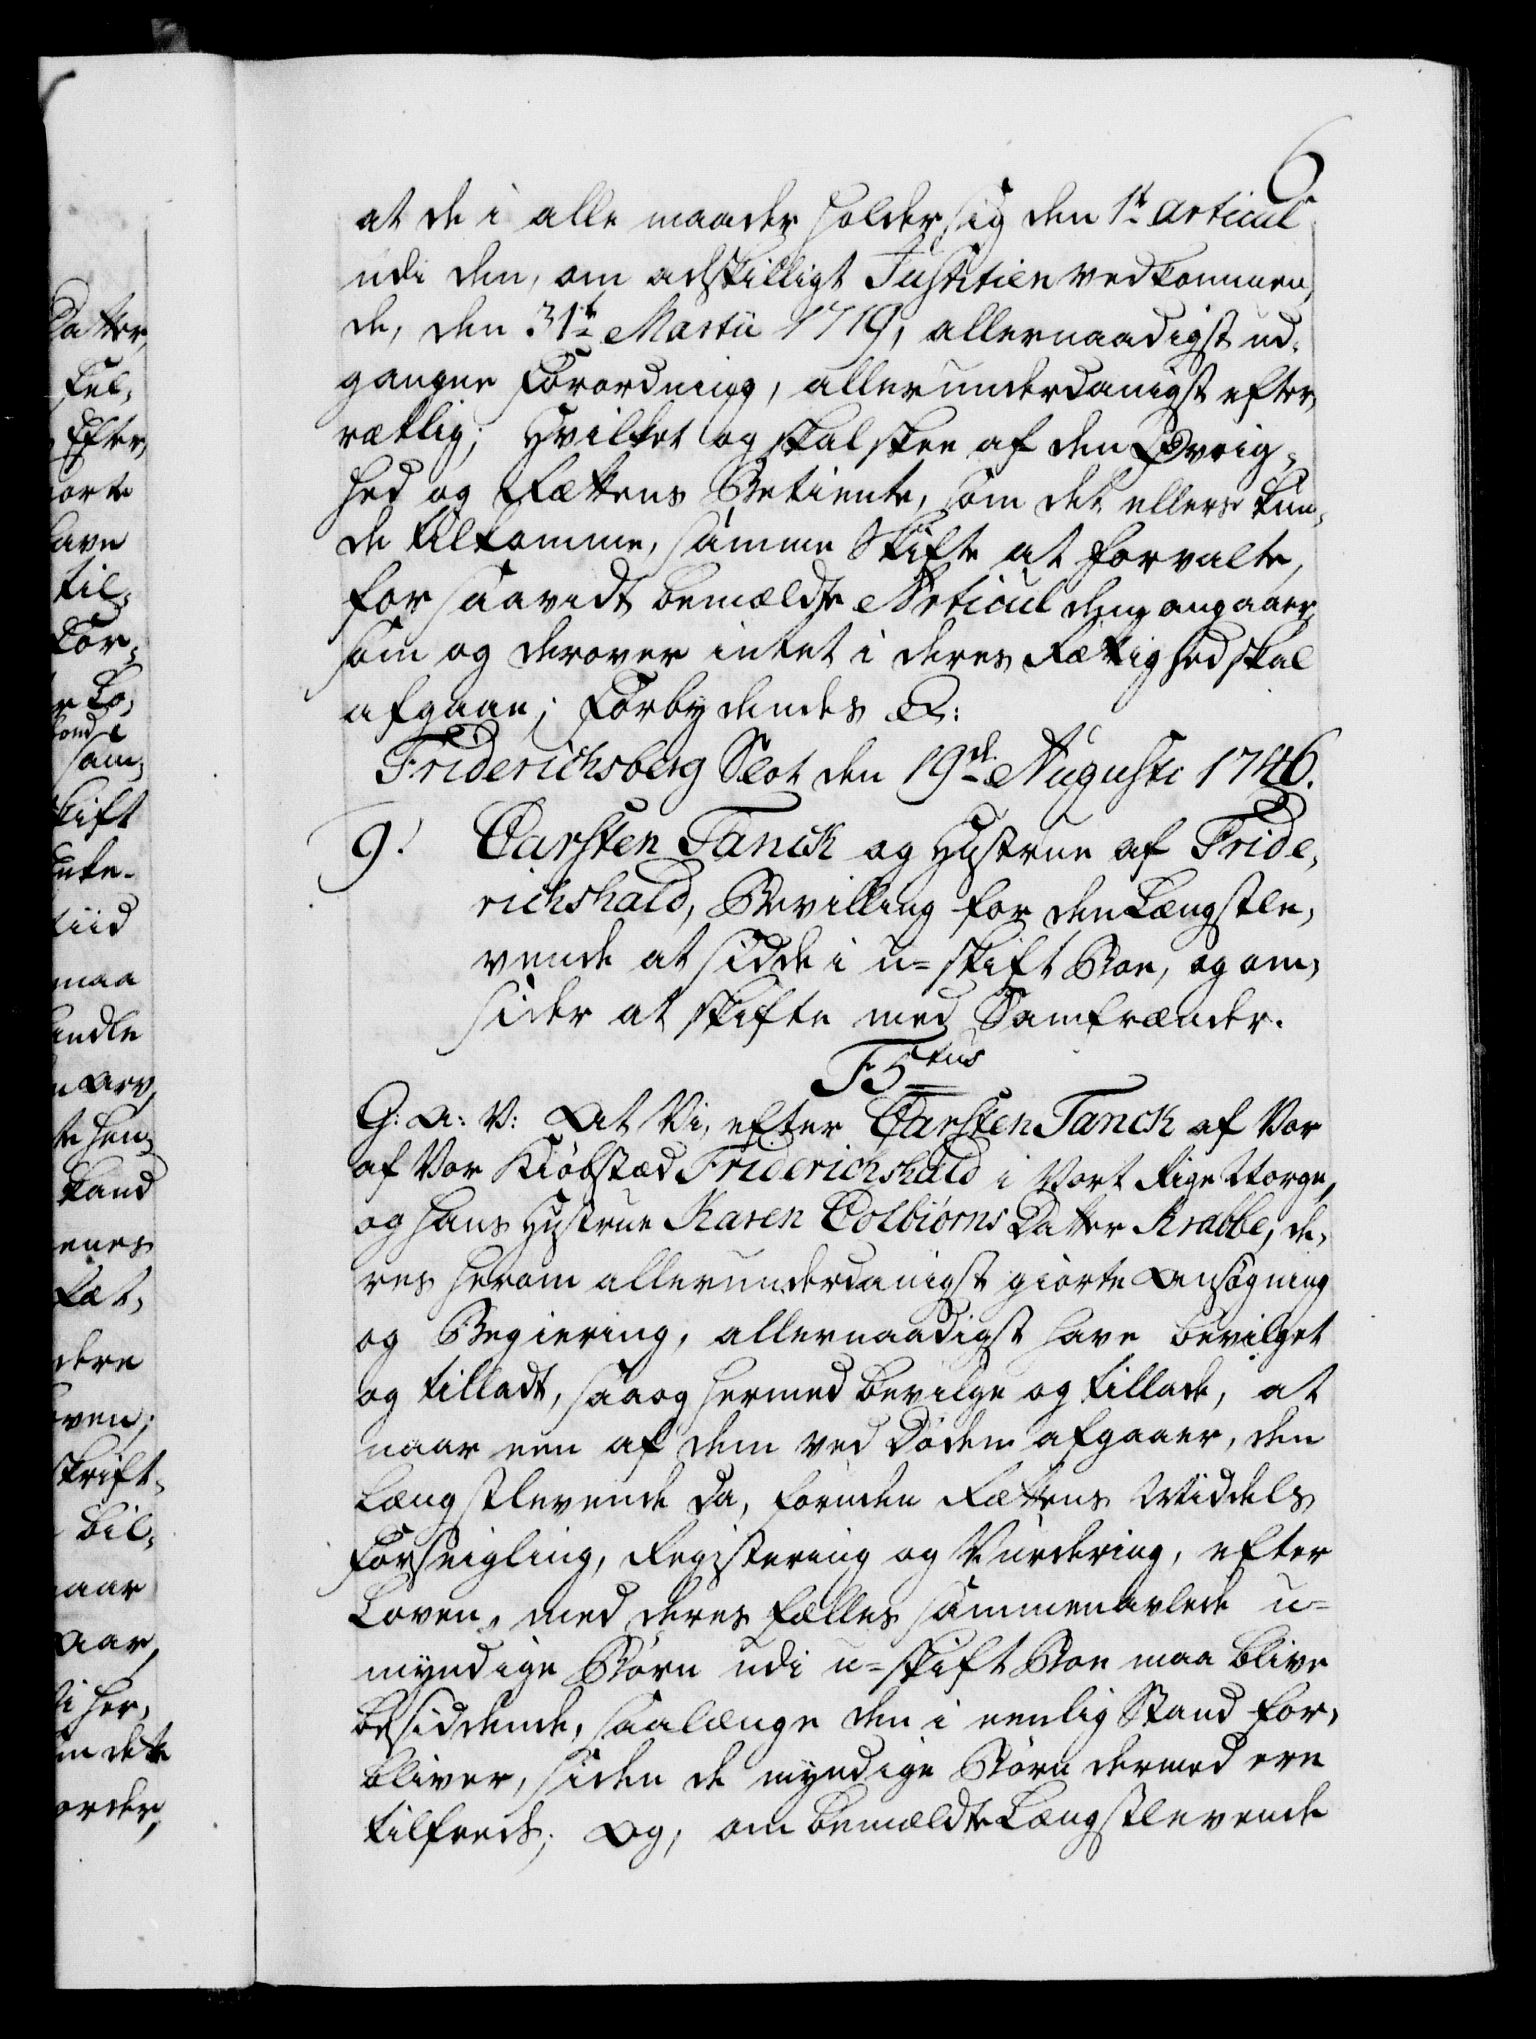 6
at de i alle maader holder sig den 1te articul
udi den, om adskilligt Justitien vedkommen,
de, den 31te Martii 1719, allernaadigst ud,
gangne Forordning, allerunderdanigst efter,
rætlig; Hvilket og skal skee af den Øvrig,
hed og Rættens Betiente, som det ellers kun,
de tilkomme, samme Skifte at forvalte,
for saavidt bemældte Articul dem angaaer,
som og derover intet i deres Rættighed skal
afgaae; Forbydendes &:
Friderichsberg Slot den 19de Augusti 1746.
9. Carsten Tanck og Hustrue af Fride,
richshald, Bevilling for den Længstle,
vende at sidde i u=skift Boe, og om,
sider at skifte med Samfrænder.
F5tus
G: A: V: At Vi, efter Carsten Tanck af Vor
af Vor Kiøbstæd Friderichshald i Vort Rige Norge,
og hans Hustrue Karen Colbiørns Datter Krabbe, de,
res herom allerunderdanigst giorte Ansøgning
og Begiering, allernaadigst have bevilget
og tilladt, saa og hermed bevilge og tillade, at
naar een af dem ved Døden afgaaer, den
Længstlevende da, foruden Rættens Middels
Forseigling, Registering og Vurdering, efter
Loven, med deres fælles sammenavlede u=
myndige Børn udi u=skift Boe maa blive
besiddende, saalænge den i eenlig Stand for,
bliver, siden de myndige Børn dermed ere
tilfreds; Og, om bemældte Længstlevende
Datter,
Efter,
orte
have
til,
For,
sam,
skift
tiid
maa
andle
Arv,
kand
enes
Ræt,
dere
oven;
skrift,
bil,
naar
Aar,
Vi her,
dette
order,